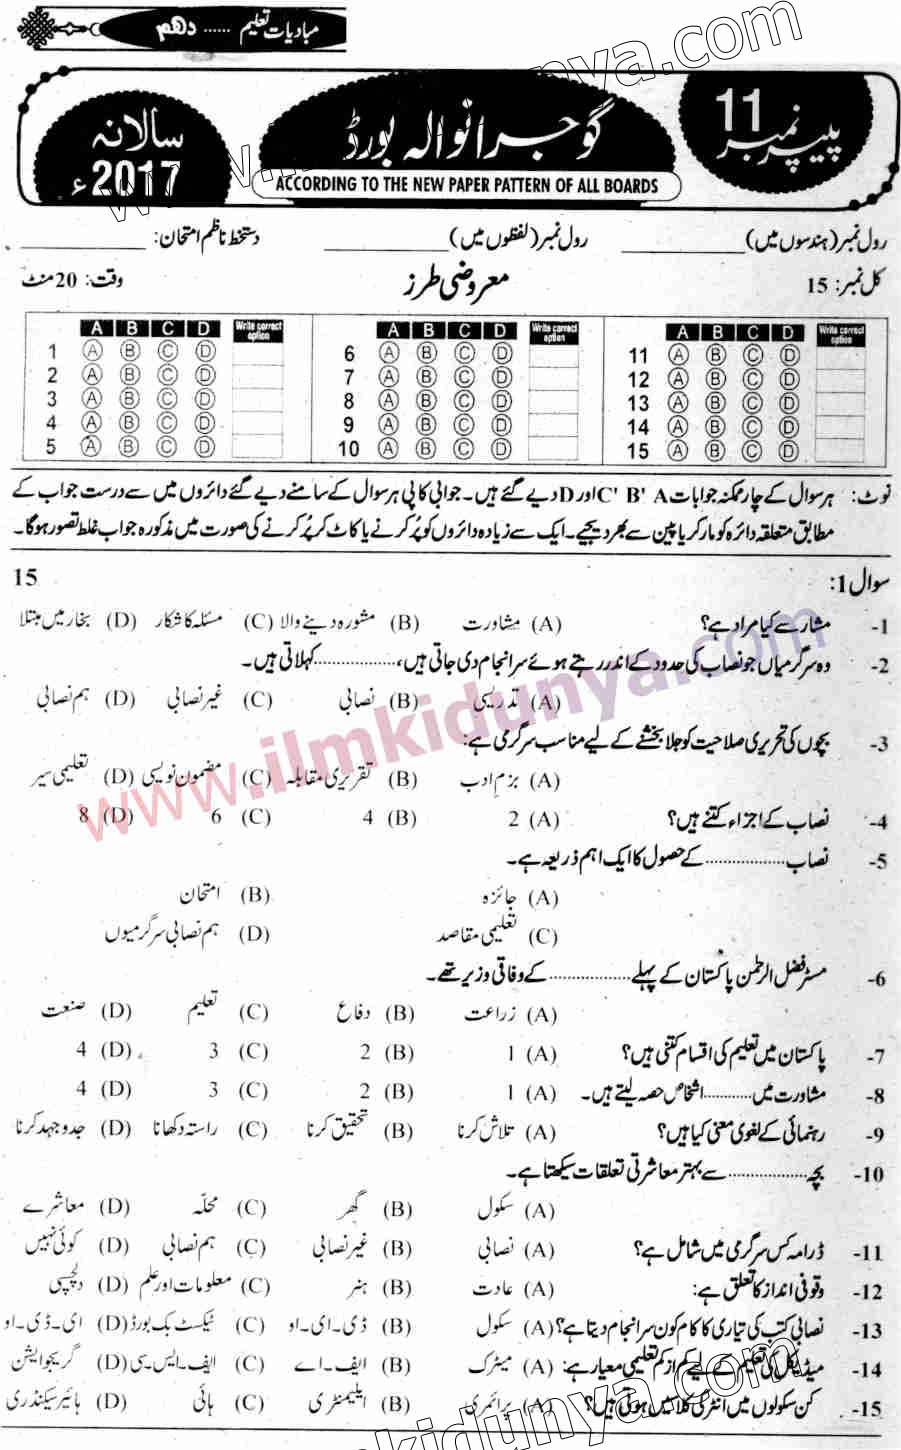 مبادیات تعلیم ...... دہم
پیپر نمبر 11
گوجرانوالہ بورڈ
سالانہ 2017ء
ACCORDING TO THE NEW PAPER PATTERN OF ALL BOARDS
رول نمبر (ہندسوں میں) ____________ رول نمبر (لفظوں میں) ____________ دستخط ناظم امتحان: ____________
کل نمبر: 15 معروضی طرز وقت: 20 منٹ
A B C D Write correct option A B C D Write correct option A B C D Write correct option
1 A B C D 6 A B C D 11 A B C D
2 A B C D 7 A B C D 12 A B C D
3 A B C D 8 A B C D 13 A B C D
4 A B C D 9 A B C D 14 A B C D
5 A B C D 10 A B C D 15 A B C D
نوٹ: ہر سوال کے چار ممکنہ جوابات A ' B ' C اور D دیے گئے ہیں۔ جوابی کاپی پر ہر سوال کے سامنے دیے گئے دائروں میں سے درست جواب کے
مطابق متعلقہ دائرہ کو مارکر یا پین سے بھر دیجیے۔ ایک سے زیادہ دائروں کو پُر کرنے یا کاٹ کر پُر کرنے کی صورت میں مذکورہ جواب غلط تصور ہوگا۔
سوال 1: 15
1- مشار سے کیا مراد ہے؟ (A) مشاورت (B) مشورہ دینے والا (C) مسئلہ کا شکار (D) بخار میں مبتلا
2- وہ سرگرمیاں جو نصاب کی حدود کے اندر رہتے ہوئے سرانجام دی جاتی ہیں، .................. کہلاتی ہیں۔
(A) تدریسی (B) نصابی (C) غیر نصابی (D) ہم نصابی
3- بچوں کی تحریری صلاحیت کو جلا بخشنے کے لیے مناسب سرگرمی ہے:
(A) بزم ادب (B) تقریری مقابلہ (C) مضمون نویسی (D) تعلیمی سیر
4- نصاب کے اجزاء کتنے ہیں؟ (A) 2 (B) 4 (C) 6 (D) 8
5- نصاب .................. کے حصول کا ایک اہم ذریعہ ہے۔
(A) جائزہ (B) امتحان
(C) تعلیمی مقاصد (D) ہم نصابی سرگرمیوں
6- مسٹر فضل الرحمٰن پاکستان کے پہلے .................. کے وفاقی وزیر تھے۔
(A) زراعت (B) دفاع (C) تعلیم (D) صنعت
7- پاکستان میں تعلیم کی اقسام کتنی ہیں؟ (A) 1 (B) 2 (C) 3 (D) 4
8- مشاورت میں ........... اشخاص حصہ لیتے ہیں۔ (A) 1 (B) 2 (C) 3 (D) 4
9- رہنمائی کے لغوی معنی کیا ہیں؟ (A) تلاش کرنا (B) تحقیق کرنا (C) راستہ دکھانا (D) جدوجہد کرنا
10- بچہ .................. سے بہتر معاشرتی تعلقات سیکھتا ہے۔
(A) سکول (B) گھر (C) محلّہ (D) معاشرے
11- ڈرامہ کس سرگرمی میں شامل ہے؟ (A) نصابی (B) غیر نصابی (C) ہم نصابی (D) کوئی نہیں
12- وقوفی انداز کا تعلق ہے: (A) عادت (B) ہنر (C) معلومات اور علم (D) دلچسپی
13- نصابی کتب کی تیاری کا کام کون سرانجام دیتا ہے؟ (A) سکول (B) ڈی۔ای۔او (C) ٹیکسٹ بک بورڈ (D) ای۔ڈی۔او
14- میڈیکل کی تعلیم کے لیے کم از کم تعلیمی معیار ہے: (A) میٹرک (B) ایف۔اے (C) ایف۔ایس۔سی (D) گریجوایشن
15- کن سکولوں میں انٹر کی کلاسیں ہوتی ہیں؟ (A) پرائمری (B) ایلیمنٹری (C) ہائی (D) ہائیر سیکنڈری
www.ilmkidunya.com